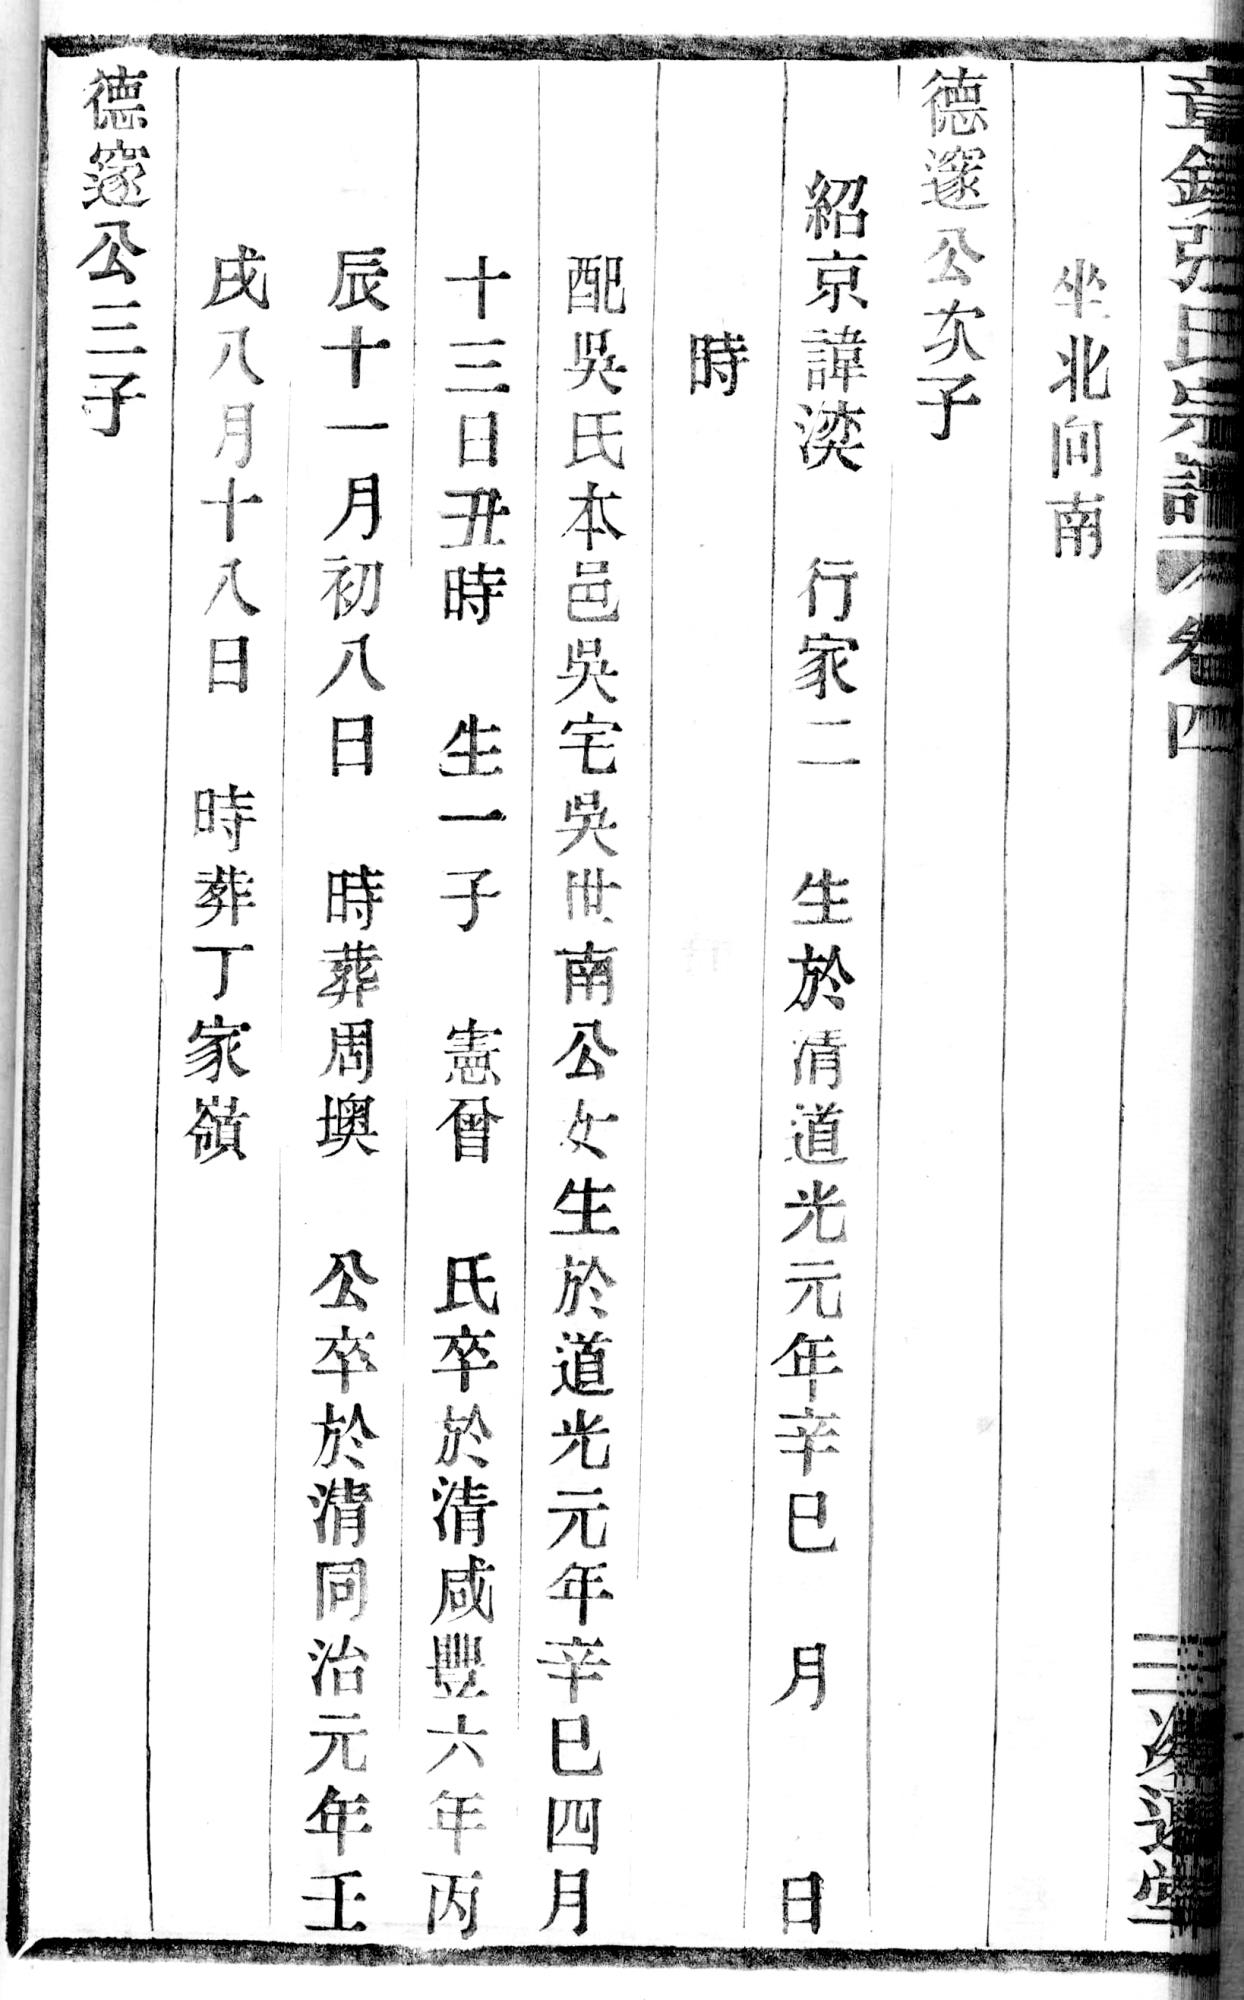 章鎮張氏宗譜 卷四
坐北向南
德邃公次子
紹京諱湙 行家二 生於清道光元年辛巳 月 日
時
配吳氏本邑吳宅吳世南公女生於道光元年辛巳四月
十三日丑時 生一子 憲曾 氏卒於清咸豐六年丙
辰十一月初八日 時葬周墺 公卒於清同治元年壬
戌八月十八日 時葬丁家嶺
德邃公三子